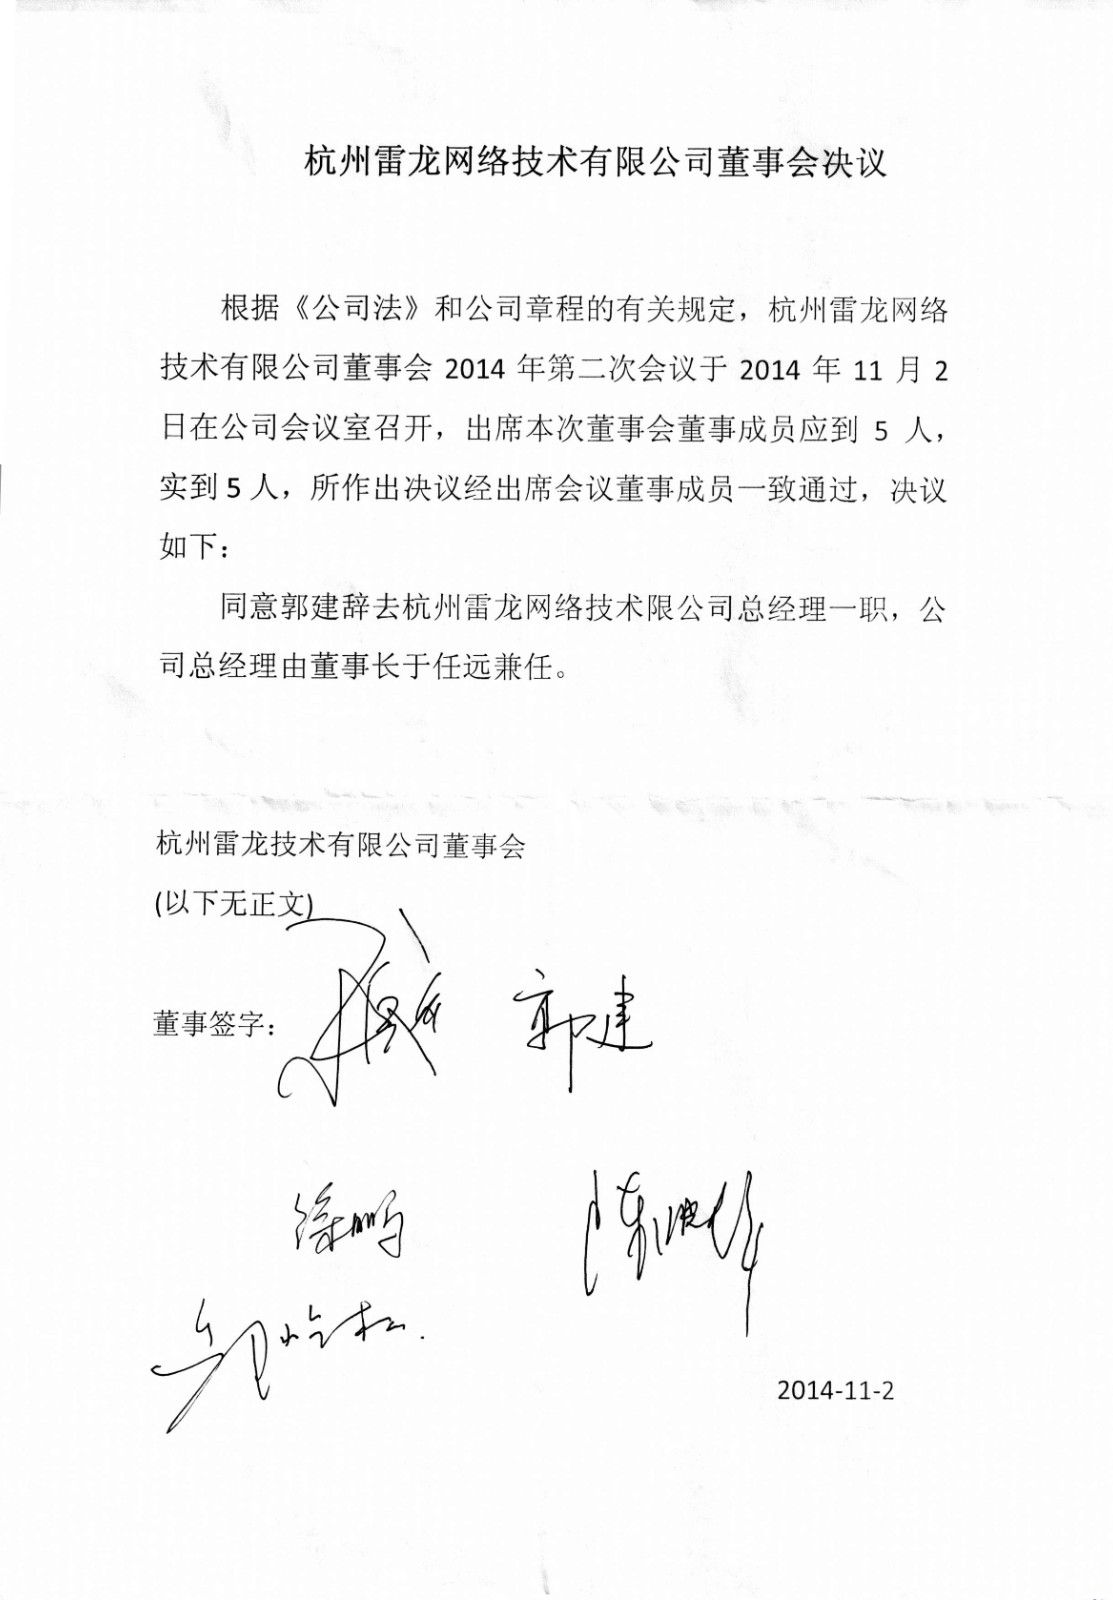 杭州雷龙网络技术有限公司董事会决议
根据《公司法》和公司章程的有关规定，杭州雷龙网络
技术有限公司董事会 2014 年第二次会议于 2014 年 11 月 2
日在公司会议室召开，出席本次董事会董事成员应到 5 人，
实到 5 人，所作出决议经出席会议董事成员一致通过，决议
如下：
同意郭建辞去杭州雷龙网络技术限公司总经理一职，公
司总经理由董事长于任远兼任。
杭州雷龙技术有限公司董事会
(以下无正文)
董事签字： 郭建
徐鹏
2014-11-2